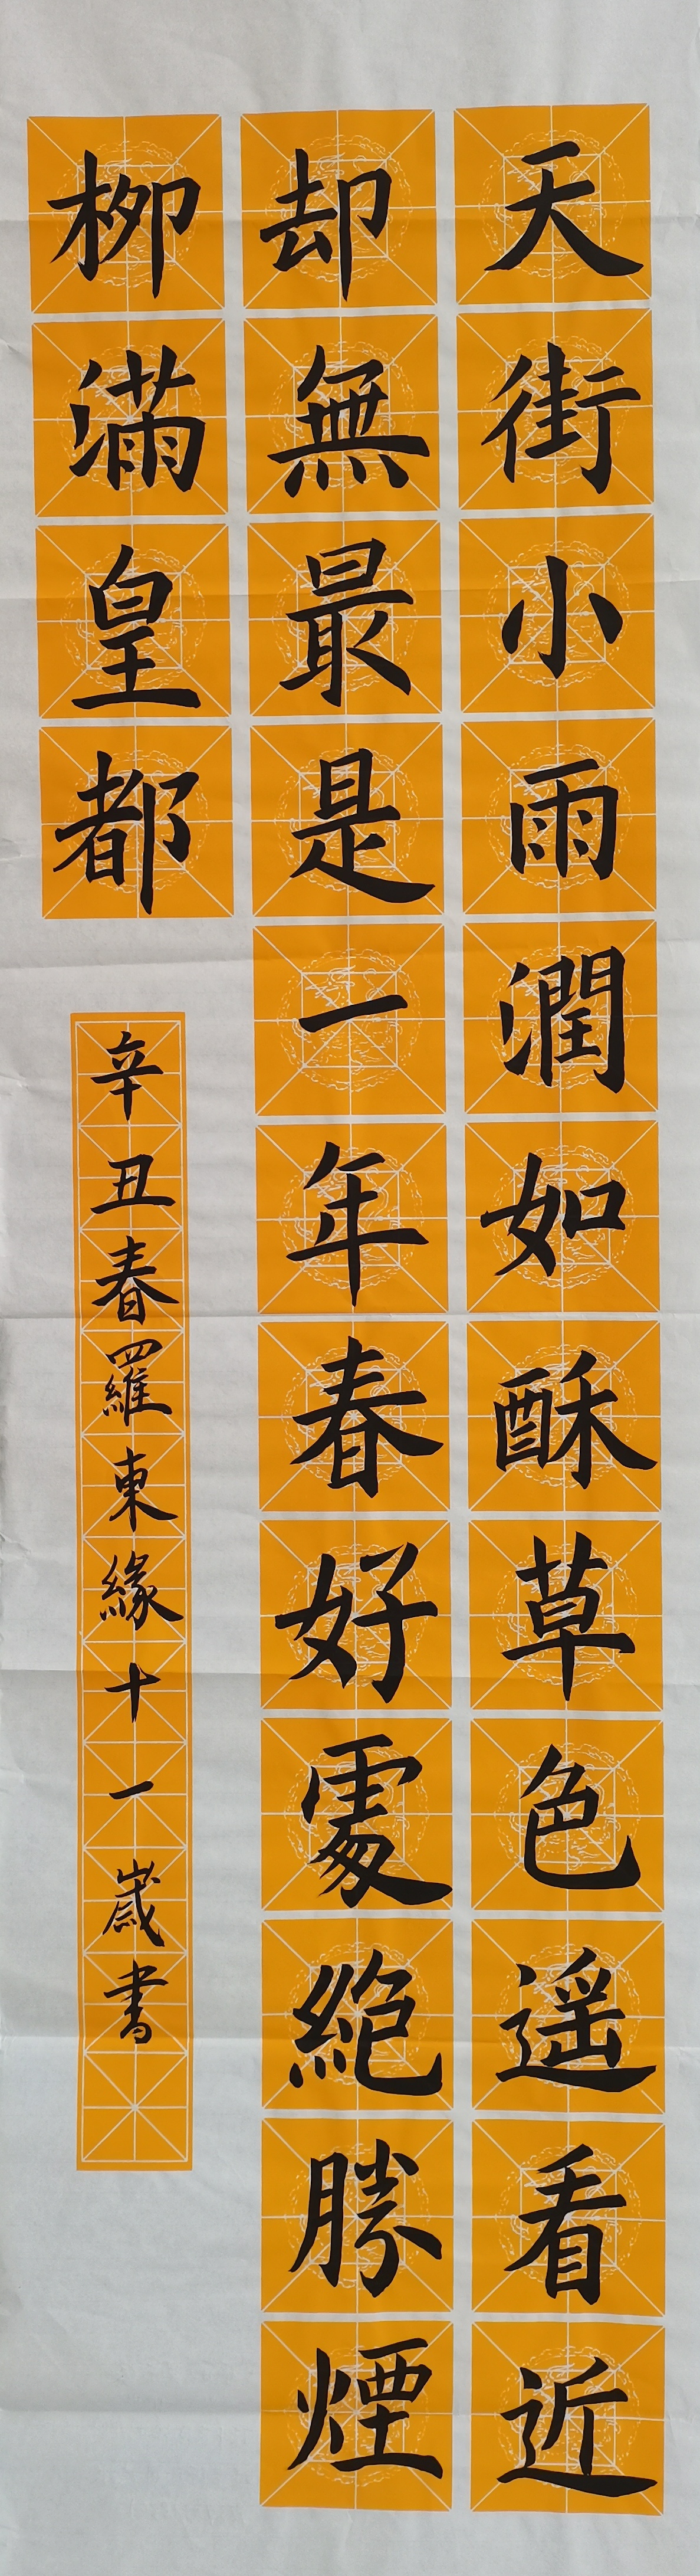 天街小雨潤如酥草色遥看近
却無最是一年春好處絶勝煙
柳滿皇都
辛丑春羅東緣十一歲書